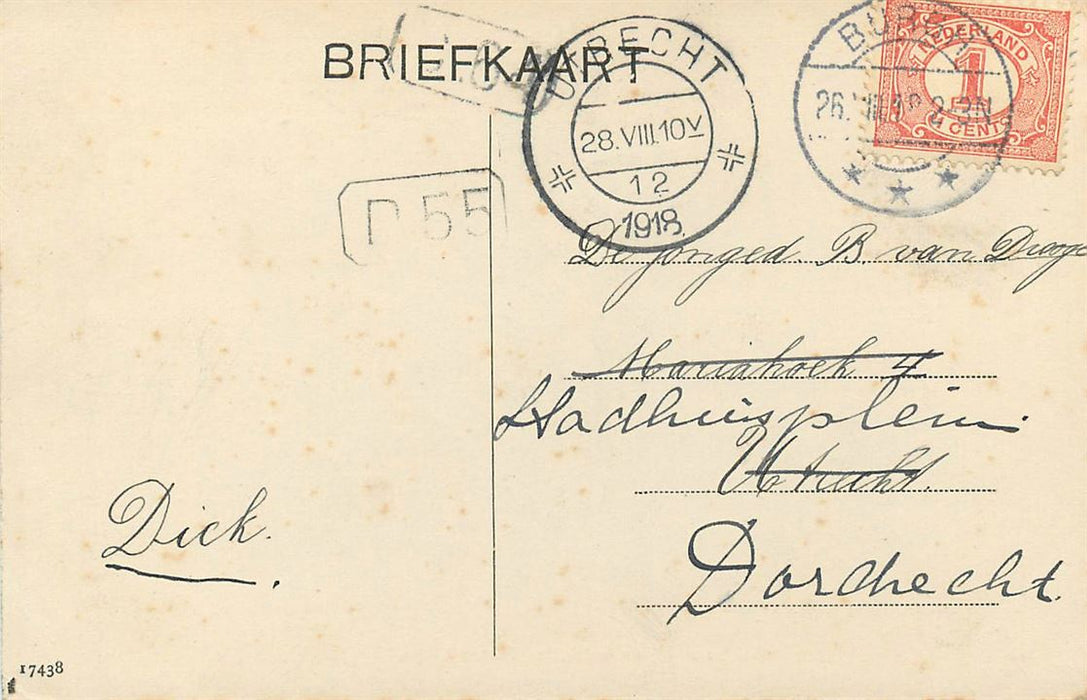 BRIEFKAART
UTRECHT
28.VIII.10V
12
1918
NEDERLAND
1
CENT
55
De jonged. B. van
Mariahoek 4
Stadhuisplein.
Utrecht.
Dordrecht.
Dick.
17438